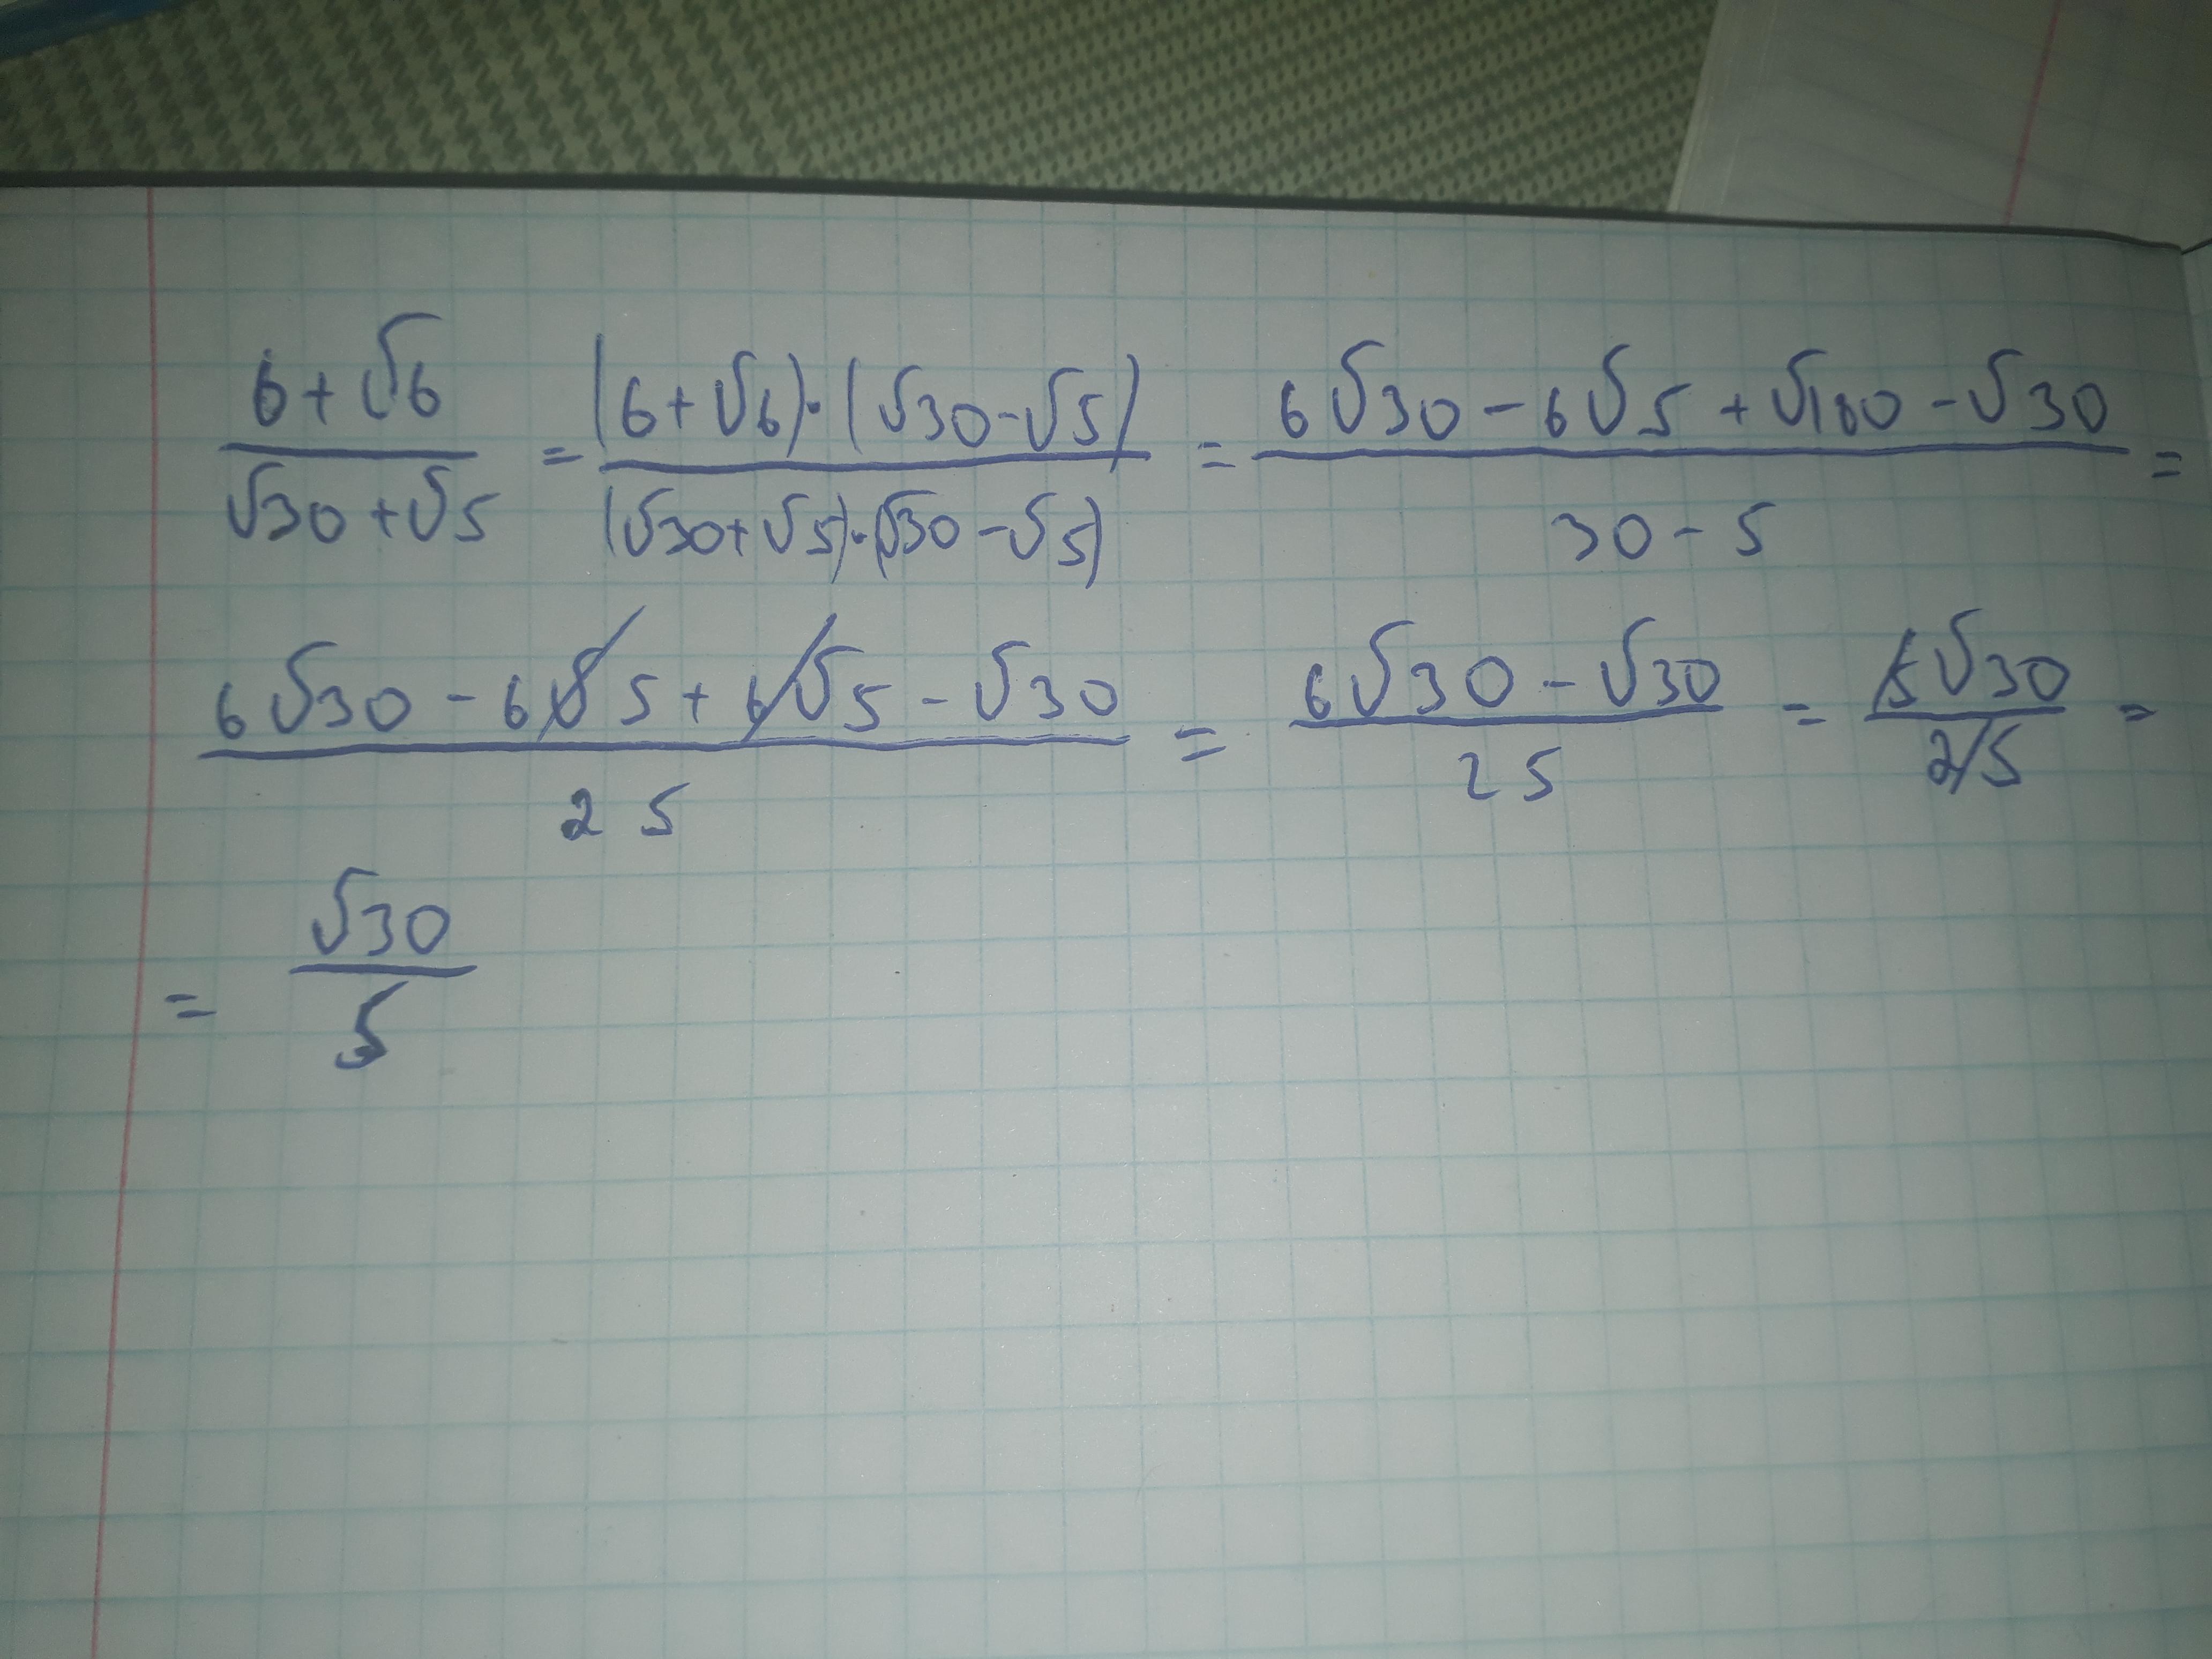 (6+√6)/(√30+√5) = ((6+√6)·(√30-√5))/((√30+√5)·(√30-√5)) = (6√30-6√5+√180-√30)/(30-5) =
(6√30-6√5+6√5-√30)/25 = (6√30-√30)/25 = 5√30/25 =
= √30/5